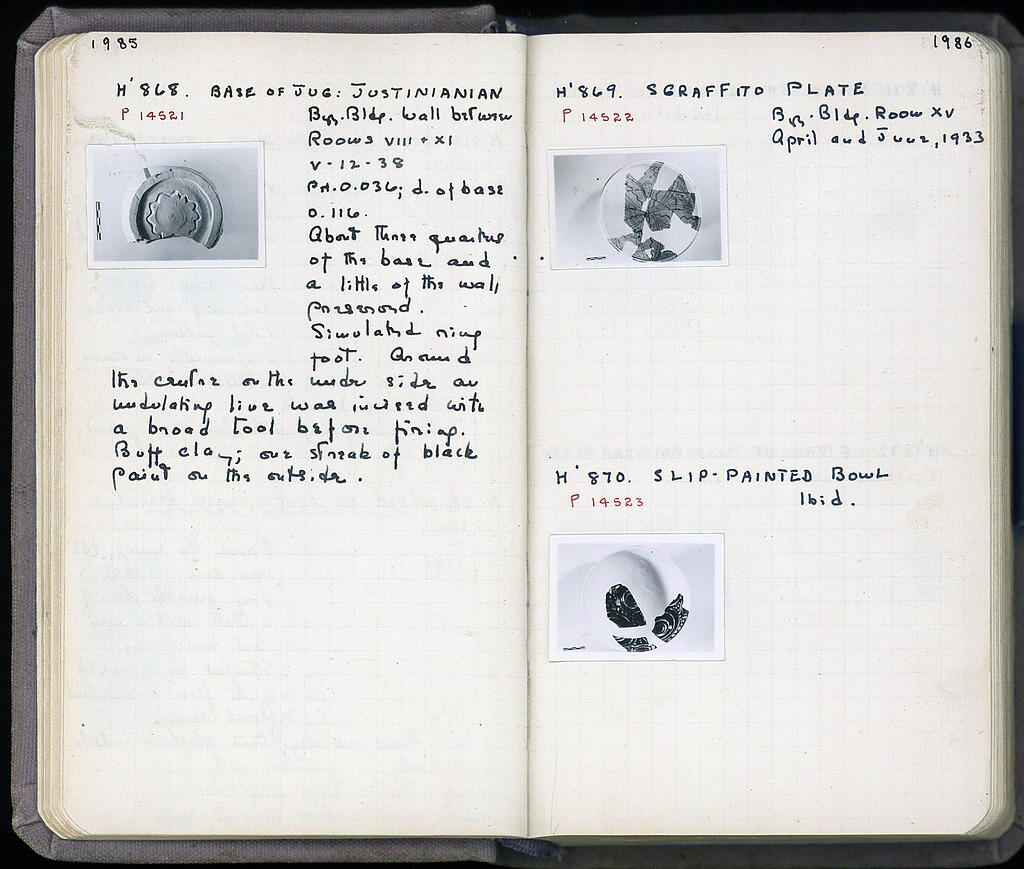 1985
H' 868. BASE OF JUG: JUSTINIANIAN
P 14521
Byz. Bldg. Wall between
Rooms VIII + XI
V-12-38
PH. 0.036; d. of base
0.116.
About three quarters
of the base and
a little of the wall
preserved.
Simulated ring
foot. Around
the centre on the under side an
undulating line was incised with
a broad tool before firing.
Buff clay; one streak of black
paint on the outside.
1986
H' 869. SGRAFFITO PLATE
P 14522
Byz. Bldg. Room XV
April and June, 1933
H' 870. SLIP-PAINTED BOWL
P 14523
Ibid.